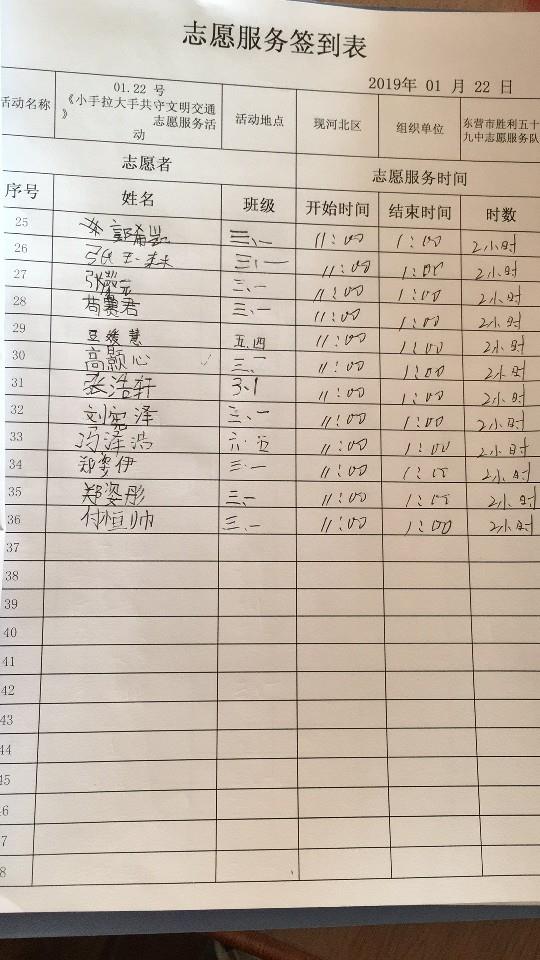 志愿服务签到表
2019年 01 月 22 日
活动名称 01.22 号《小手拉大手共守文明交通》志愿服务活动 活动地点 现河北区 组织单位 东营市胜利五十九中志愿服务队
志愿者 志愿服务时间
序号 姓名 班级 开始时间 结束时间 时数
25 郭希 三、一 11:00 1:00 2小时
26 三、一 11:00 1:00 2小时
27 张 三、一 11:00 1:00 2小时
28 苟赛君 三、一 11:00 1:00 2小时
29 王媛慧 五.四 11:00 1:00 2小时
30 高颢心 三、一 11:00 1:00 2小时
31 张浩轩 3.1 11:00 1:00 2小时
32 刘宪泽 三、一 11:00 1:00 2小时
33 冯泽浩 六.五 11:00 1:00 2小时
34 郑姿伊 三.一 11:00 1:00 2小时
35 郑姿彤 三、一 11:00 1:00 2小时
36 付恒帅 三、一 11:00 1:00 2小时
37
38
39
40
41
42
43
44
45
46
7
8